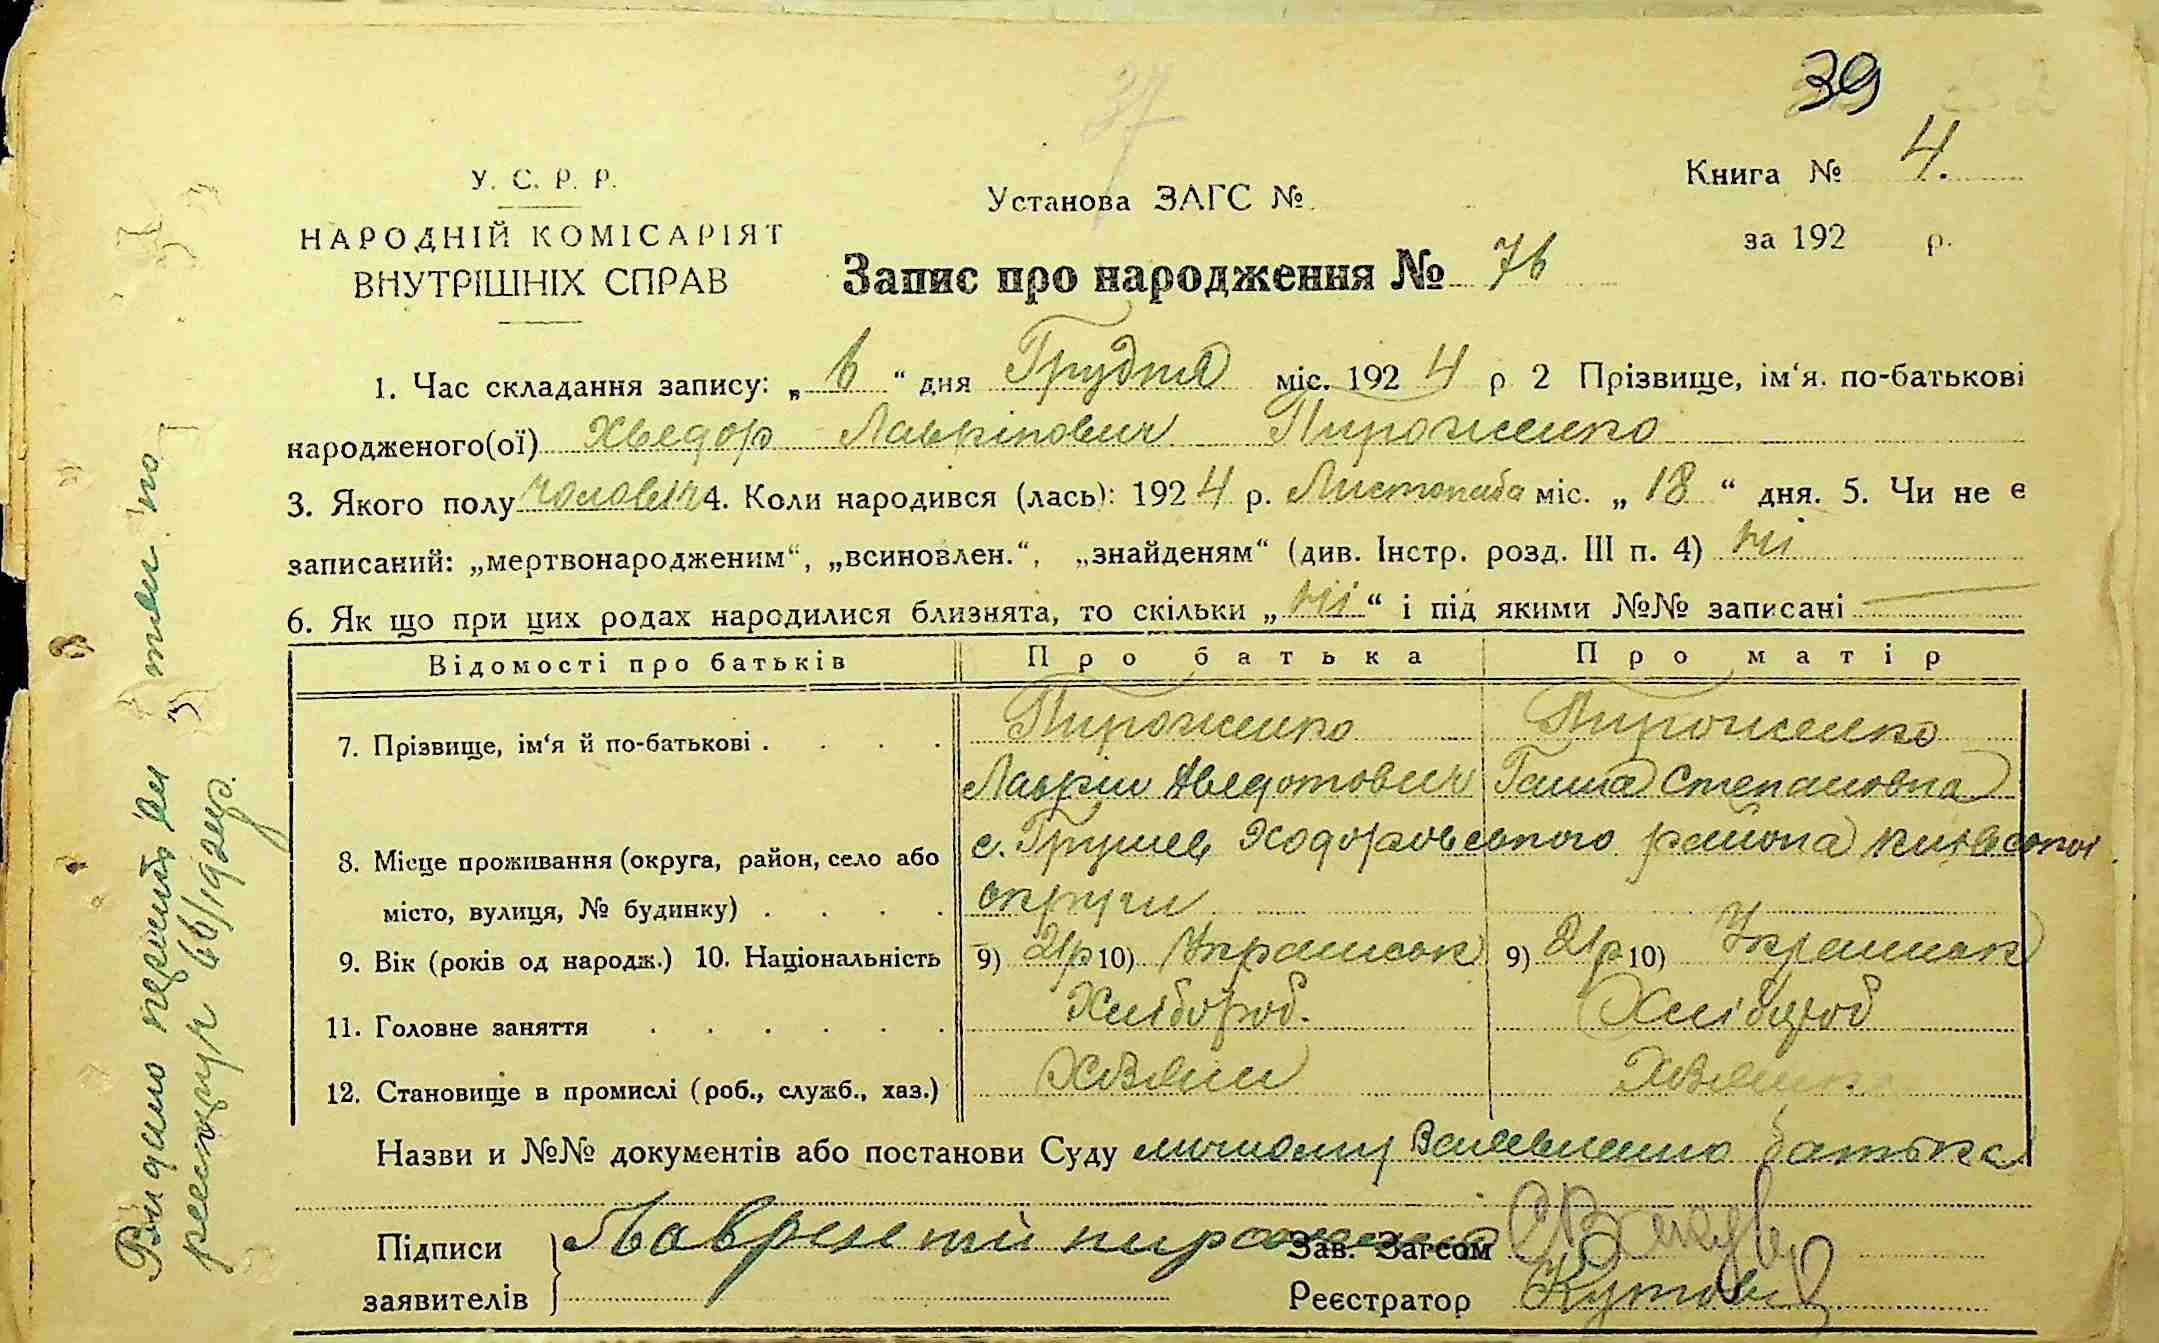 39
37
У. С. Р. Р.
НАРОДНІЙ КОМІСАРІЯТ
ВНУТРІШНІХ СПРАВ
Установа ЗАГС №
Книга № 4.
за 192 р.
Запис про народження № 76
1. Час складання запису: „ 6 “ дня Грудня міс. 192 4 р 2 Прізвище, ім‘я. по-батькові
народженого(ої) Хведор Лаврінович Пироженко
3. Якого полу чоловіч 4. Коли народився (лась): 192 4 р. Листопада міс. „ 18 “ дня. 5. Чи не є
записаний: „мертвонародженим“, „всиновлен.“, „знайденям“ (див. Інстр. розд. III п. 4) ні
6. Як що при цих родах народилися близнята, то скільки „ ні “ і під якими №№ записані —
Відомості про батьків Про батька Про матір
7. Прізвище, ім‘я й по-батькові . . . . Пироженко Пироженко
Лаврін Хведотович Ганна Степановна
8. Місце проживання (округа, район, село або с. Грушев Ходоровського района Київської
місто, вулиця, № будинку) . . . . округи
9. Вік (років од народж.) 10. Національність 9) 21р 10) Українськ 9) 21р 10) Українськ
11. Головне заняття . . . . . . Хлібороб. Хлібороб
12. Становище в промислі (роб., служб., хаз.) Хазяин Хазяика
Назви и №№ документів або постанови Суду личному батька
Підписи
заявителів
Лаврентій
Зав. Загсом
Реєстратор
Видано
66/1924р.